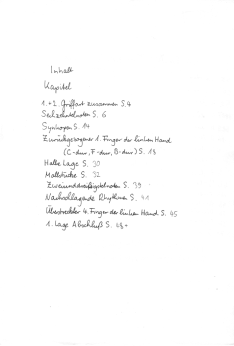 Inhalt
Kapitel
1.+2. Griffart zusammen S.4
Sechzehntelnoten S. 6
Synkopen S. 14
Zurückgezogener 1. Finger der linken Hand
(C-dur, F-dur, B-dur) S. 18
Halbe Lage S. 30
Maltstücke S. 32
Zweiunddreißigstelnoten S. 39
Nachschlagende Rhythmen S. 41
Überstreckter 4. Finger der linken Hand S. 45
1. Lage Abschluß S.